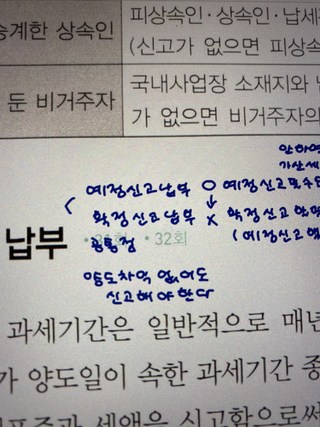 승계한 상속인
피상속인·상속인·납세
(신고가 없으면 피상속
둔 비거주자
국내사업장 소재지와
가 없으면 비거주자의
안하역
가산세
예정신고납부 ○ 예정신고
확정신고납부 × 확정신고
(예정신고
납부
공통점
• 32회
양도차익 없어도
신고해야 한다
과세기간은 일반적으로 매년
가 양도일이 속한 과세기간 종
세액을 신고함으로써